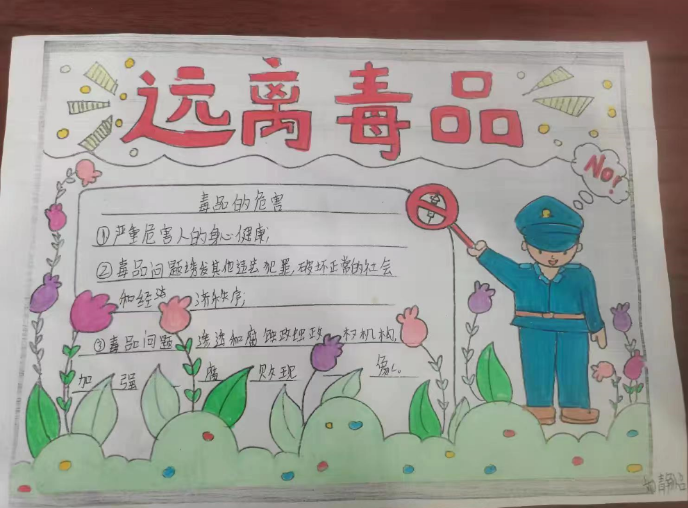 远离毒品
No!
毒品的危害
①严重危害人的身心健康;
②毒品问题诱发其他违法犯罪,破坏正常的社会
和经济 济秩序;
③毒品问题 渗透和腐蚀政 政权机构,
加 强 腐 败现